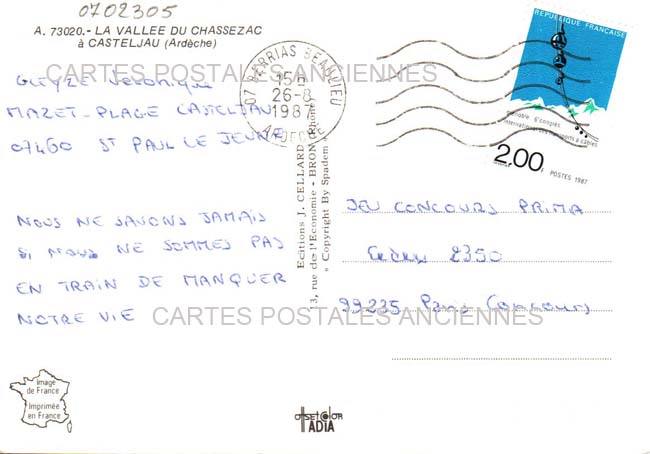 0702305
A. 73020.- LA VALLEE DU CHASSEZAC
à CASTELJAU (Ardèche)
CARTES POSTALES ANCIENNES
GLEYZE Véronique
MAZET-PLAGE CASTELJAU
07460 ST PAUL LE JEUNE
07 BERRIAS BEAULIEU
15H
26-8
1987
ARDECHE
REPUBLIQUE FRANÇAISE
grenoble 6e congrès
international des transports à câbles
2.00F
POSTES 1987
Editions J. CELLARD
13, rue de l'Economie - BRON (Rhône)
« Copyright By Spadem »
NOUS NE SAVONS JAMAIS
SI NOUS NE SOMMES PAS
EN TRAIN DE MANQUER
NOTRE VIE
JEU CONCOURS PRIMA
Cedex 2350
99235 Paris Concours
CARTES POSTALES ANCIENNES
Image
de France
Imprimée
en France
offset color
IADIA